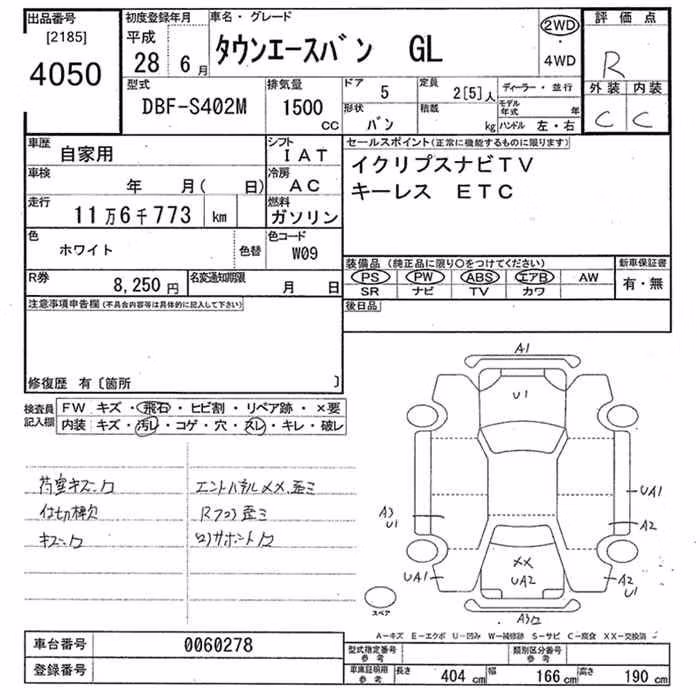 出品番号 初度登録年月 車名・グレード 評価点
[2185] 平成 タウンエースバン GL 2WD
4050 28 6月 ・4WD R
型式 排気量 ドア 定員 ディーラー・並行 外装 内装
DBF-S402M 1500 CC 5 2[5]人 モデル年式 年 C C
形状 積載
バン kg ハンドル 左・右
車歴 自家用 シフト IAT セールスポイント(正常に機能するものに限ります)
車検 年 月( 日) 冷房 AC イクリプスナビTV
走行 11万6千773 km 燃料 ガソリン キーレス ETC
色 ホワイト 色替 色コード W09
装備品(純正品に限り〇をつけてください) 新車保証書
R券 8,250円 名変通知期限 月 日 PS PW ABS エアB AW 有・無
SR ナビ TV カワ
注意事項申告欄(不具合内容等は具体的に記入して下さい) 後日品
修復歴 有〔箇所 〕
検査員記入欄 FW キズ・飛石・ヒビ割・リペア跡・×要
内装 キズ・汚レ・コゲ・穴・スレ・キレ・破レ
荷室キズ
仕切棒欠
キズ
エンドパネルXX、歪ミ
Rフロア歪ミ
A1
U1
A3
U1
UA1
A2
XX
UA2
UA1
A2
U1
A3
スペア
A-キズ E-エクボ U-凹み W-補修跡 S-サビ C-腐食 XX-交換済
車台番号 0060278 型式指定番号 参考 類別区分番号 参考
登録番号 車庫証明用 参考 長さ 404 cm 幅 166 cm 高さ 190 cm